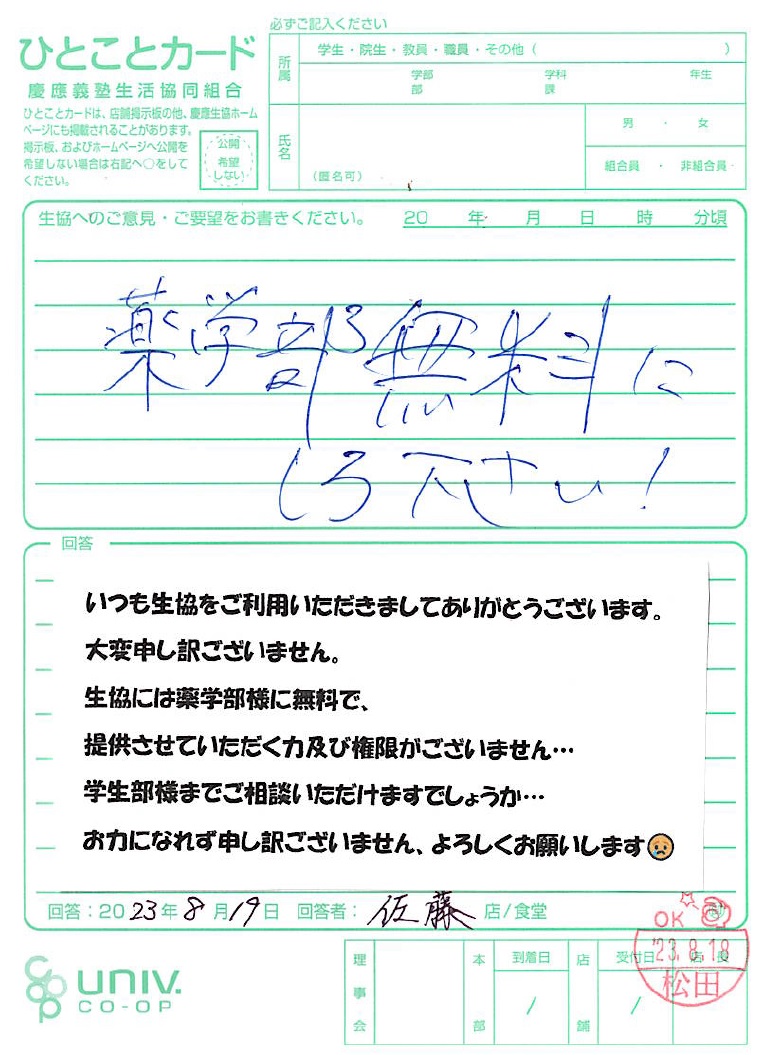 必ずご記入ください
ひとことカード
慶應義塾生活協同組合
ひとことカードは、店舗掲示板の他、慶應生協ホーム
ページにも掲載されることがあります。
掲示板、およびホームページへ公開を
希望しない場合は右記へ○をして
ください。
公開
希望
しない
所属
学生・院生・教員・職員・その他（ ）
学部 学科 年生
部 課
氏名
（匿名可）
男 ・ 女
組合員 ・ 非組合員
生協へのご意見・ご要望をお書きください。 20 年 月 日 時 分頃
薬学部無料に
しろ下さい！
回答
いつも生協をご利用いただきましてありがとうございます。
大変申し訳ございません。
生協には薬学部様に無料で、
提供させていただく力及び権限がございません…
学生部様までご相談いただけますでしょうか…
お力になれず申し訳ございません、よろしくお願いします😢
回答：2023年8月19日 回答者：佐藤 店/食堂
OK
'23.8.18
松田
coop UNIV.
CO-OP
理事会
本部
到着日
/
店舗
受付日
/
店長